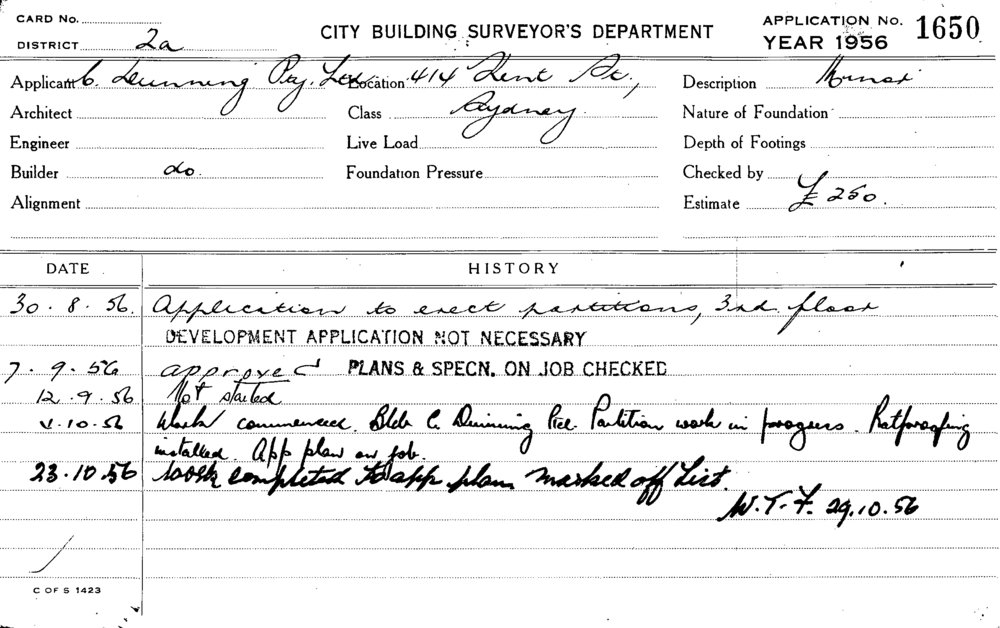 CARD No.
DISTRICT 2a
CITY BUILDING SURVEYOR'S DEPARTMENT
APPLICATION No. 1650
YEAR 1956
Applicant C. Dunning Pty. Ltd
Location 414 Kent St.,
Description Minor
Architect
Class Sydney
Nature of Foundation
Engineer
Live Load
Depth of Footings
Builder do.
Foundation Pressure
Checked by
Alignment
Estimate £ 250.
DATE HISTORY
30. 8. 56. Application to erect partitions, 3rd. floor
DEVELOPMENT APPLICATION NOT NECESSARY
7. 9. 56 approved PLANS & SPECN. ON JOB CHECKED
12. 9. 56 Not started
.10.56 Work commenced. Bldr C. Dunning Partition work in progress. Ratproofing
installed. App plan on job.
23.10.56 work completed to app plan marked off List.
W.T.F. 29.10.56
C OF S 1423